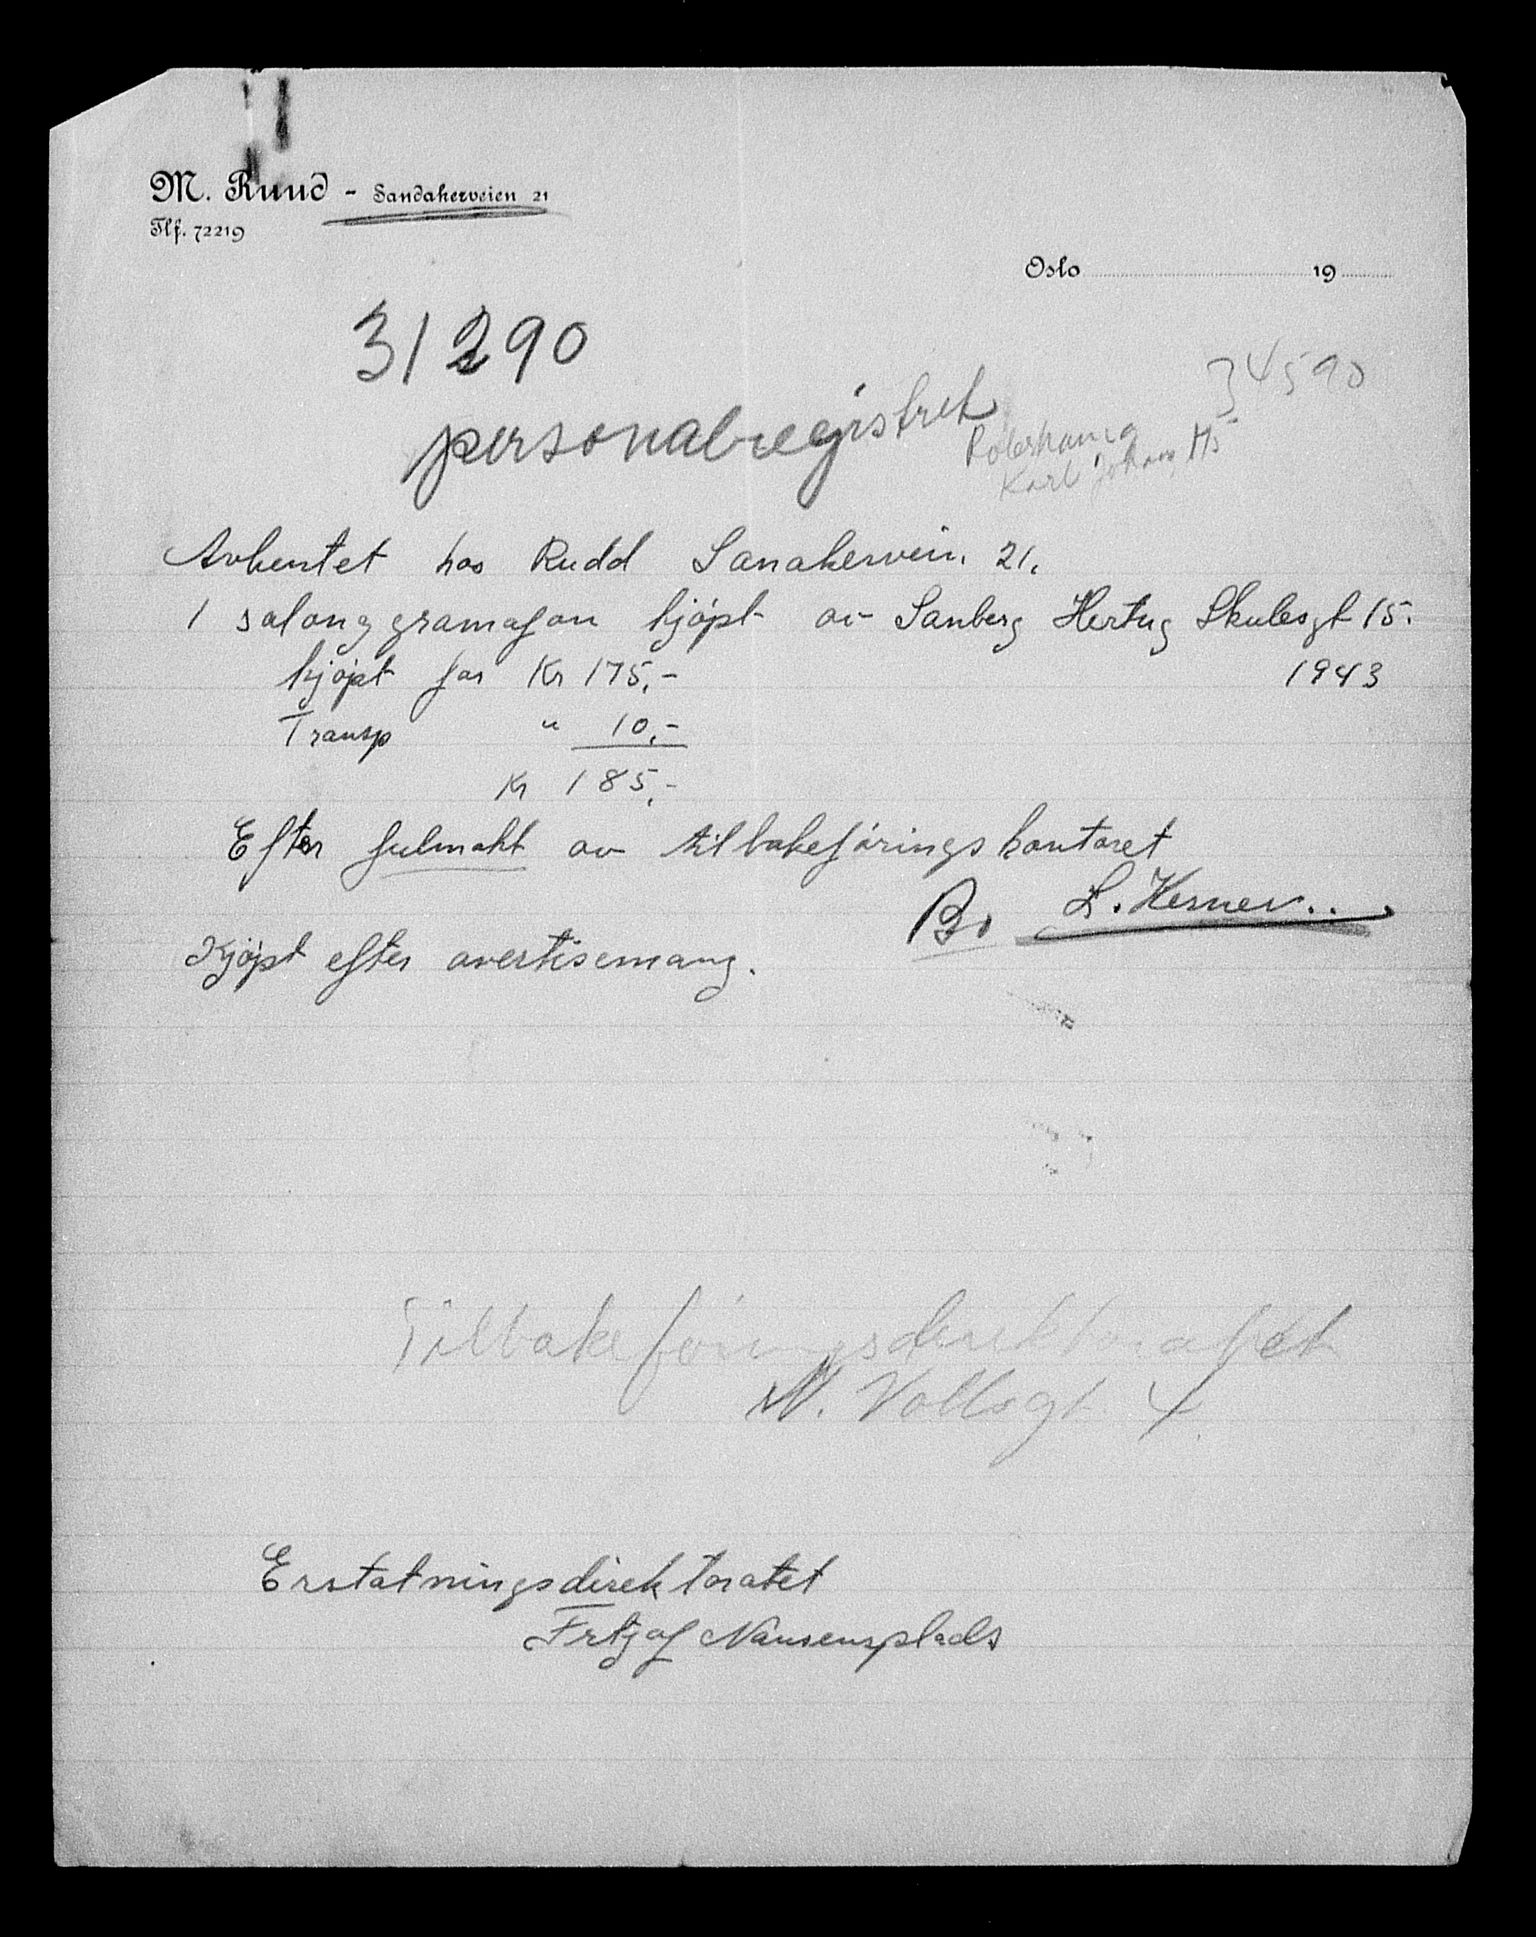 M. Ruud - Sandakerveien 21
Tlf. 72219
Oslo 19
31290
personalregistret
34590
Karl Johans
Avhentet hos Rudd Sanakervein. 21.
1 salonggramafon kjøpt av Sanberg Hertug Skulesgt 15.
kjøpt for Kr 175,- 1943
Transp " 10,-
Kr 185,-
Efter fulmakt av tilbakeføringskontoret
L. Kesner..
Kjøpt efter avertisemang.
Tilbakeføringsdirektoratet
N. Vollsgt 4
Erstatningsdirektoratet
Frtjof Nansensplads